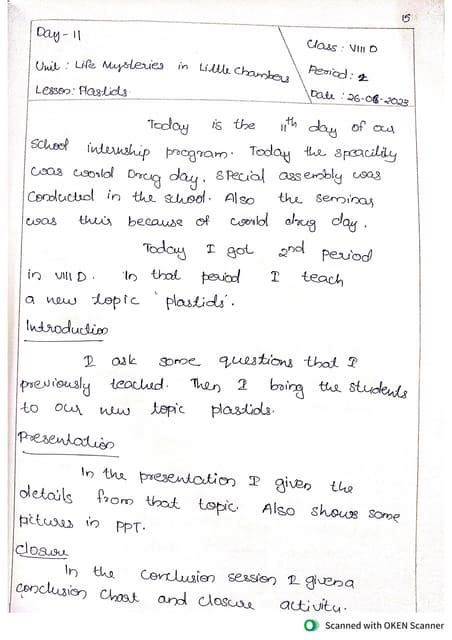 15
Day - 11
Class : VIII D
Unit : Life Mysteries in Little Chambers
Period : 2
Lesson: Plastids.
Date : 26-06-2023
Today is the 11th day of our
school internship program. Today the speacility
was world Drug day. Special assembly was
conducted in the school. Also the seminar
was their because of world drug day.
Today I got 2nd period
in VIII D. In that period I teach
a new topic 'plastids'.
Introduction
I ask some questions that I
previously teached. Then I bring the students
to our new topic plastids.
Presentation
In the presentation I given the
details from that topic. Also shows some
pictures in PPT.
Closure
In the conclusion session I given a
conclusion chart and closure activity.
Scanned with OKEN Scanner